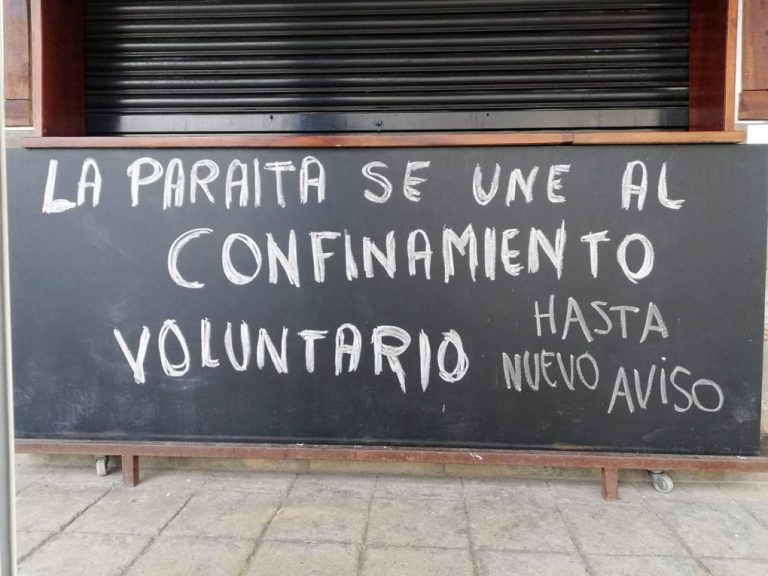 LA PARAITA SE UNE AL
CONFINAMIENTO
VOLUNTARIO
HASTA
NUEVO AVISO